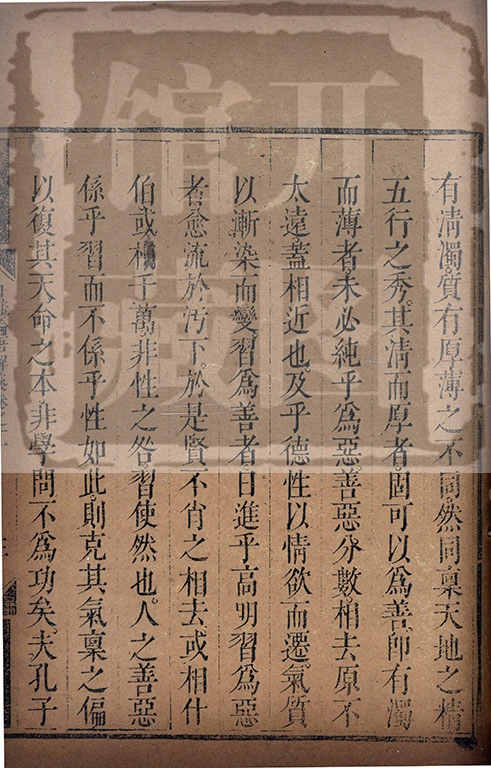 有清濁質有厚薄之不同然同稟天地之精
五行之秀其清而厚者固可以為善即有濁
而薄者未必純乎為惡善惡分數相去原不
太遠蓋相近也及乎德性以情欲而遷氣質
以漸染而變習為善者日進乎高明習為惡
者愈流於汚下於是賢不肖之相去或相什
伯或相千萬非性之咎習使然也人之善惡
係乎習而不係乎性如此則克其氣稟之偏
以復其天命之本非學問不為功矣夫孔子